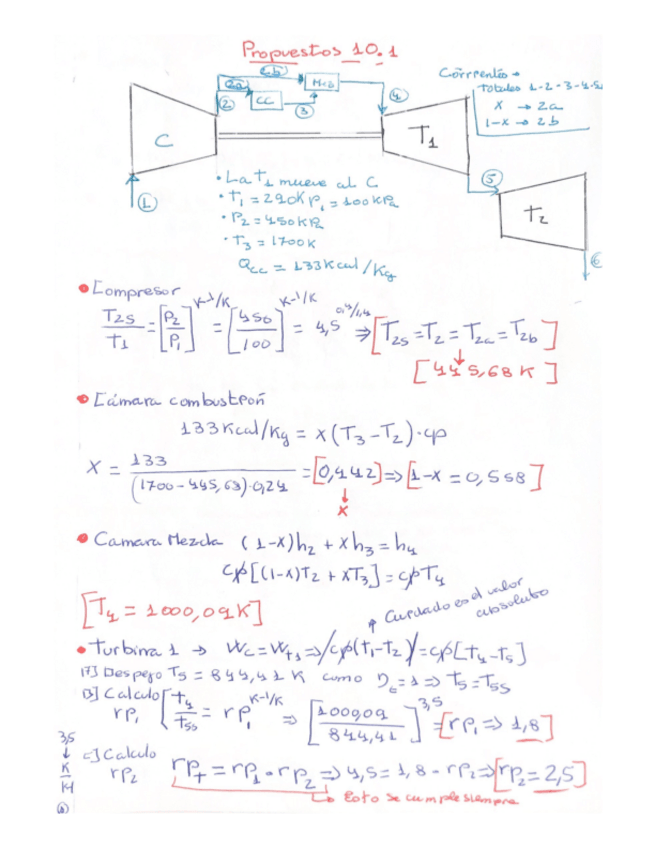 Propuestos 10.1
2b
2a
Mez
Corrientes
Totales 1-2-3-4-5
x → 2a
1-x → 2b
2
CC
3
4
C
T1
1
5
T2
6
• La T1 mueve al C
• T1 = 290K P1 = 100KPa
• P2 = 450KPa
• T3 = 1700K
Qcc = 133Kcal/Kg
• Compresor
T2s/T1 = [P2/P1]^K-1/K = [450/100]^K-1/K = 4,5^0,4/1,4 ⇒ [T2s = T2 = T2a = T2b]
[445,68 K]
• Cámara combustión
133Kcal/Kg = x(T3-T2)·cp
x = 133/(1700-445,63)·0,24 = [0,442] ⇒ [1-x = 0,558]
x
• Camara Mezcla (1-x)h2 + xh3 = h4
cp[(1-x)T2 + xT3] = cpT4
[T4 = 1000,09K]
Cuidado es el valor
absoluto
• Turbina 1 → Wc = Wt1 ⇒ /cp(T1-T2)/ = cp[T4-T5]
Despejo T5 = 844,41 K como = 1 ⇒ T5 = T5s
B] Calculo
rp1 [T4/T5s = rp1^K-1/K ⇒ [1000,09/844,41]^3,5 = [rp1 ⇒ 1,8]
3,5
↓
K
K-1
C] Calculo
rp2 rpT = rp1 · rp2 ⇒ 4,5 = 1,8 · rp2 ⇒ [rp2 = 2,5]
Esto se cumple siempre